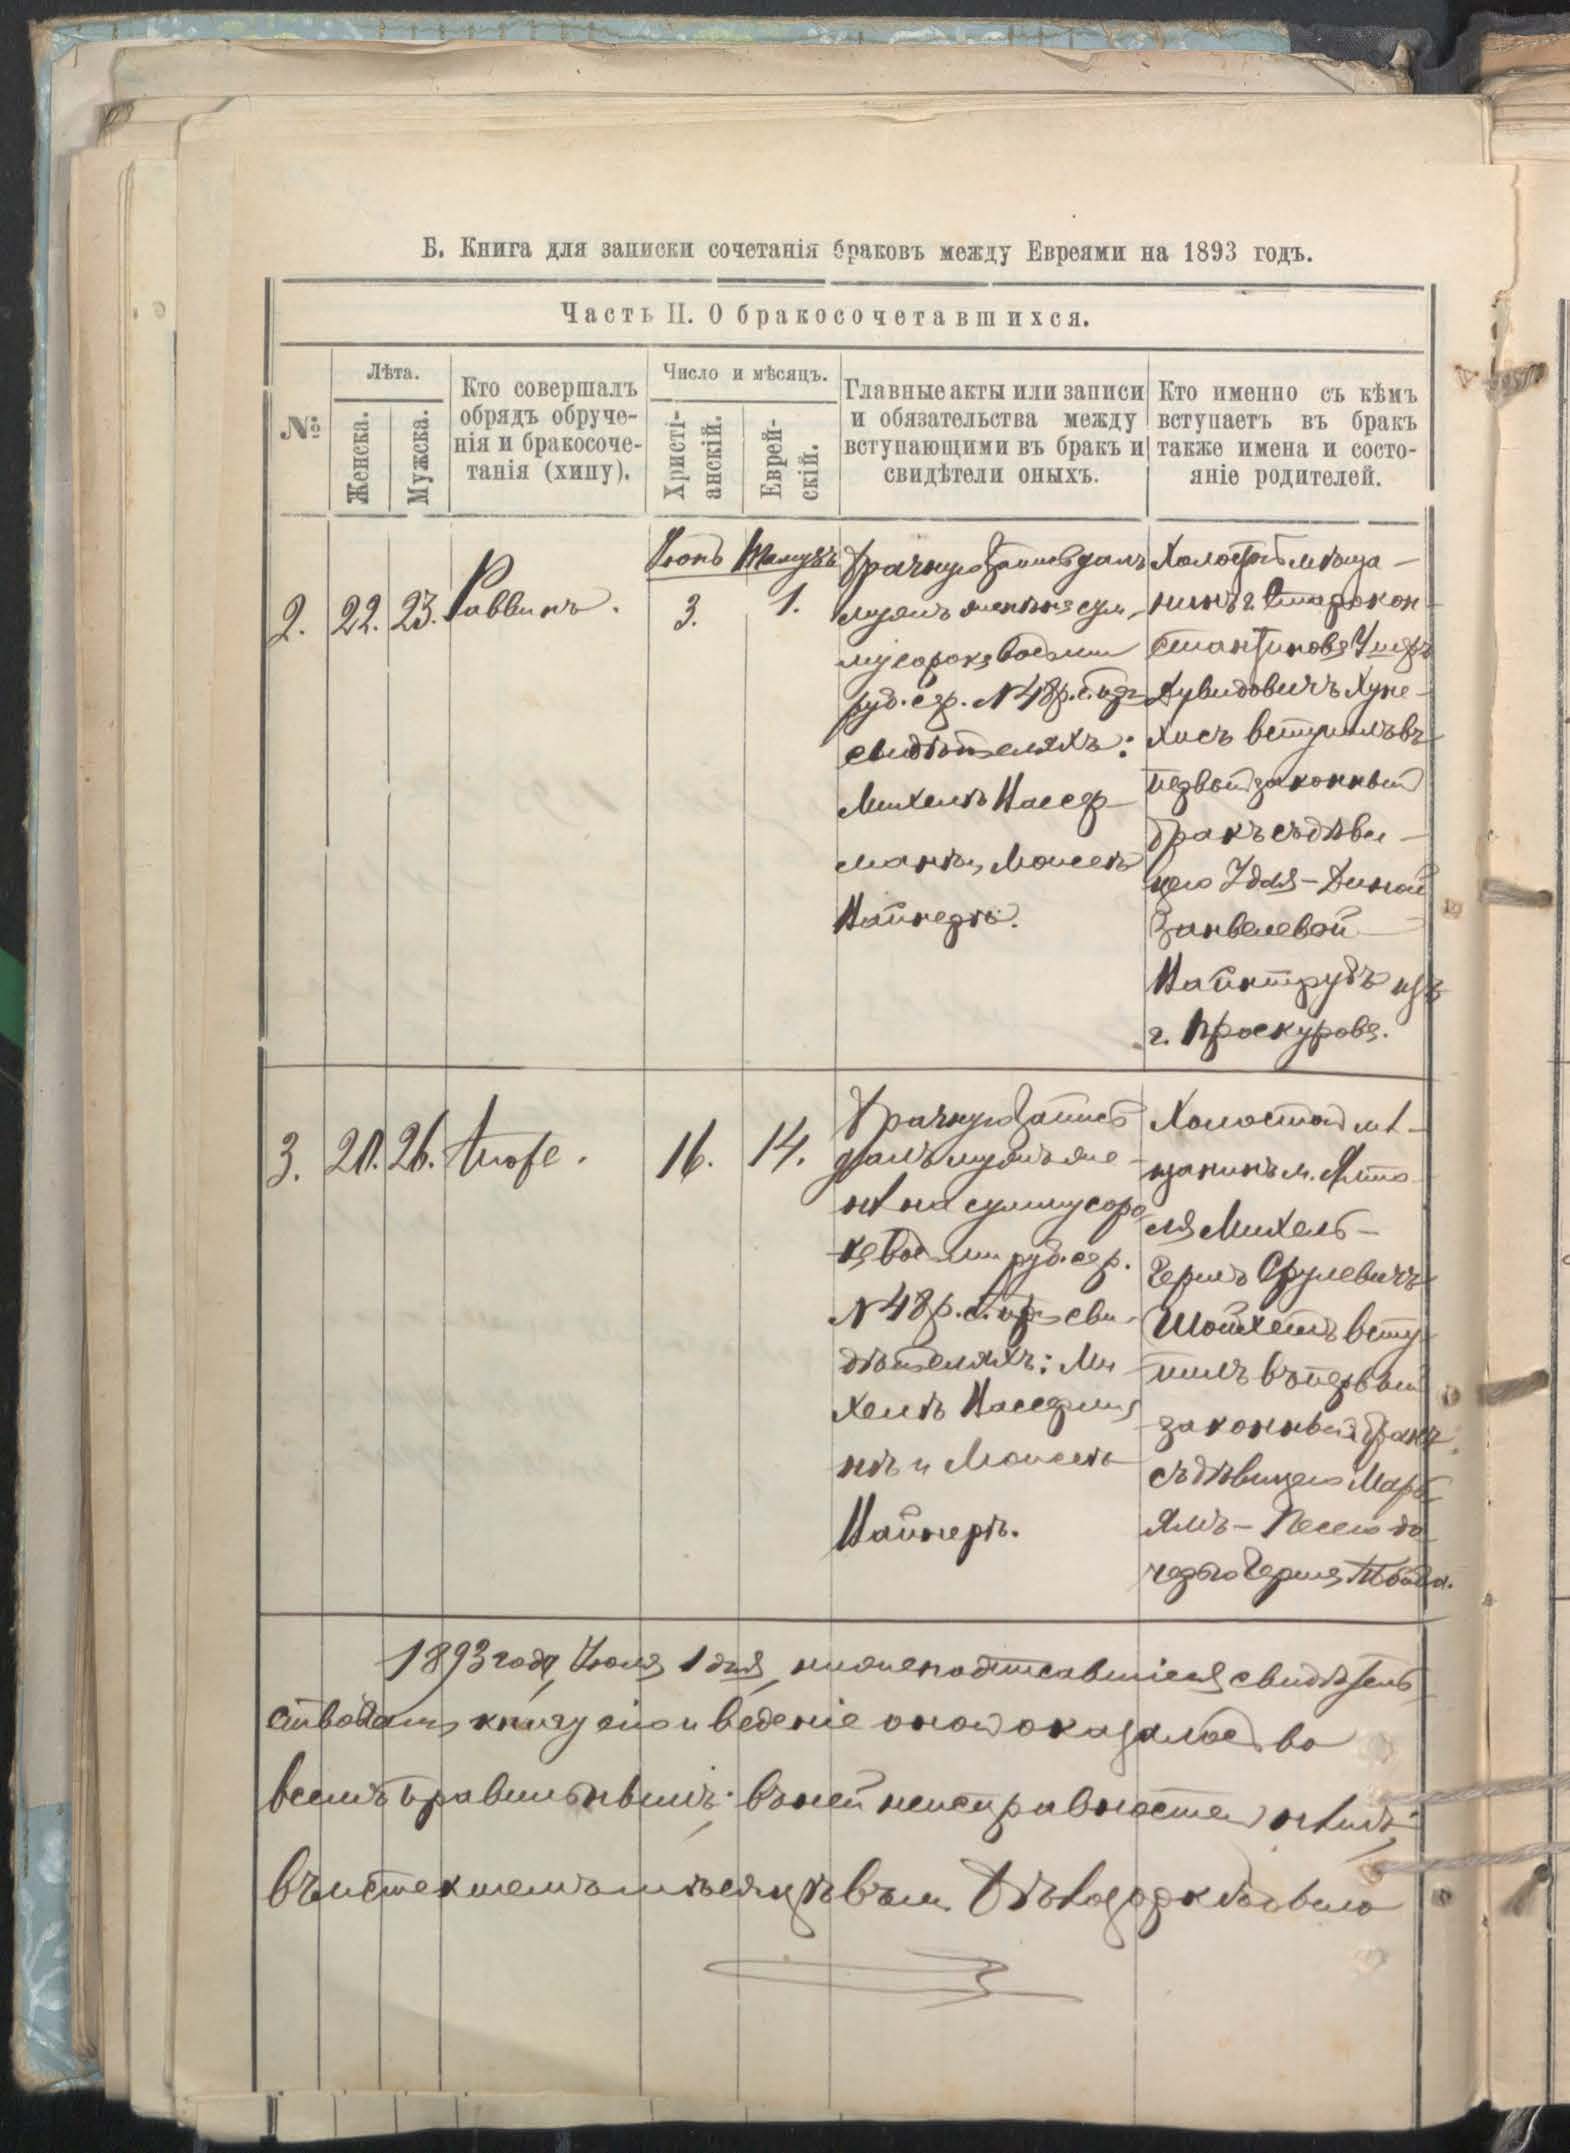 Б. Книга для записки сочетанія браковъ между Евреями на 1893 годъ.
Часть II. О бракосочетавшихся.
№
Лѣта.
Женска.
Мужска.
Кто совершалъ
обрядъ обруче-
нія и бракосоче-
танія (хипу).
Число и мѣсяцъ.
Христі-
анскій.
Еврей-
скій.
Главные акты или записи
и обязательства между
вступающими въ бракъ и
свидѣтели оныхъ.
Кто именно съ кѣмъ
вступаетъ въ бракъ
также имена и состо-
яніе родителей.
2. 22. 23. Раввинъ.
Іюнь
3.
Тамузъ
1.
Брачную запись далъ
мужъ женѣ на сум-
му сорокъ восемь
руб. сер. № 48 р. с. при
свидѣтеляхъ:
Михель
Моисей
Вайнеръ.
Холостой мѣща-
нинъ г. Старокон-
стантинова Ушеръ
Дувидовичъ Хуне-
хисъ вступилъ въ
первый законный
бракъ съ дѣви-
цею Удля-Диной
Занвелевой
Вайнтрубъ изъ
г. Проскурова.
3. 20. 26. тоже.
16.
14.
Брачную запись
далъ мужъ же-
нѣ на сумму соро-
къ восемь руб. сер.
№ 48 р. с. при сви-
дѣтеляхъ: Ми
хель
и Моисей
Вайнеръ.
Холостой мѣ-
щанинъ м. Ямпо-
ля Михель-
Гершъ Срулевичъ
Шойхетъ всту-
пилъ въ первый
законный бракъ
съ дѣвицею Марь-
ямъ-Песею до-
черью Герша
1893 года, Іюля 1 дня, нижеподписавшіеся свидѣтель-
ствовали книгу сію и веденіе оной оказалось во
всемъ правильнымъ: въ ней неисправностей нѣтъ;
въ истекшемъ мѣсяцѣ въ м. было